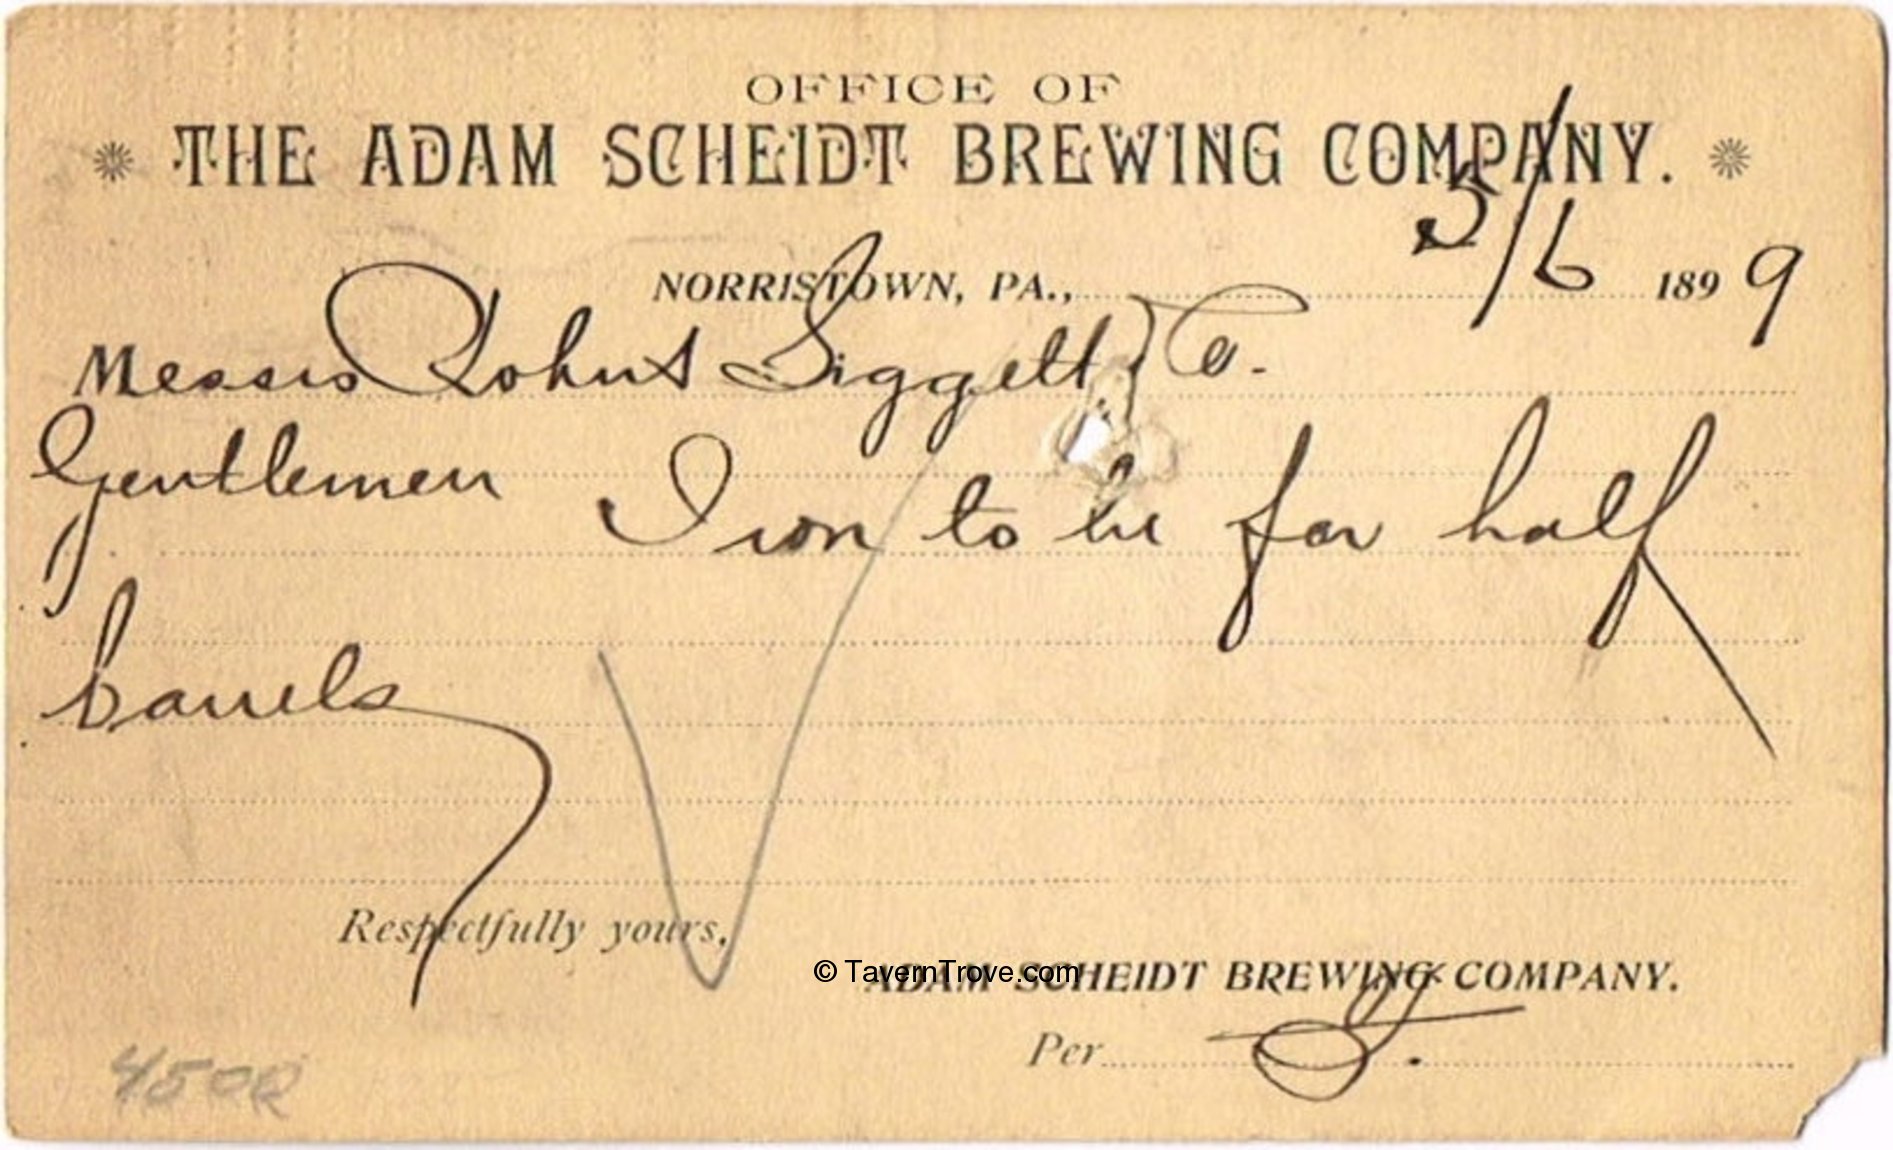 OFFICE OF
THE ADAM SCHEIDT BREWING COMPANY.
NORRISTOWN, PA., 5/6 1899
Messrs Co.
Gentlemen Iron to be for half
barrels
Respectfully yours,
© TavernTrove.com
ADAM SCHEIDT BREWING COMPANY.
Per